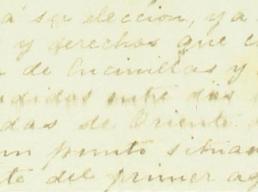 á ser eleccion, ya
y derechos que c
de Encinillas y
didos entre dos
das de Oriente
un punto situa
to del primer as